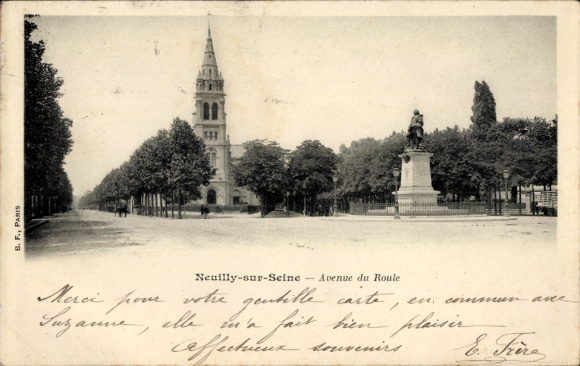 B. F., PARIS
Neuilly-sur-Seine — Avenue du Roule
Merci pour votre gentille carte, en commun avec
Suzanne, elle m'a fait bien plaisir
Affectueux souvenirs E. Frère